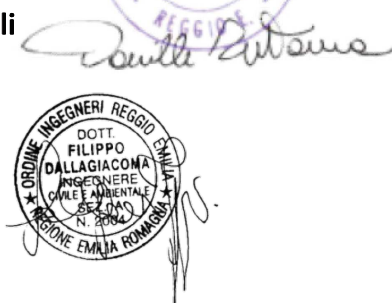 li
REGGIO E.
ORDINE INGEGNERI REGGIO EMILIA
DOTT.
FILIPPO
DALLAGIACOMA
INGEGNERE
CIVILE E AMBIENTALE
SEZ. A
N. 2004
REGIONE EMILIA ROMAGNA